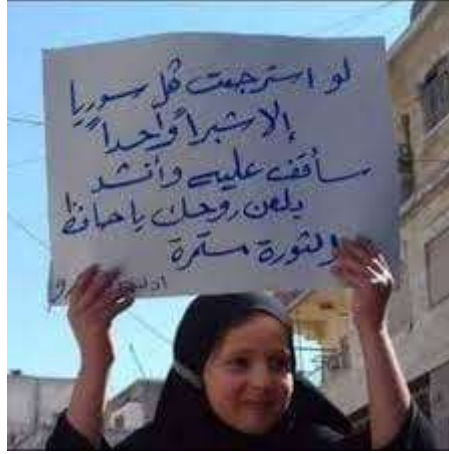 لو استرجعت كل سوريا
إلا شبراً واحداً
سأقف عليه وأنشد
يلعن روحك يا حافظ
الثورة مستمرة